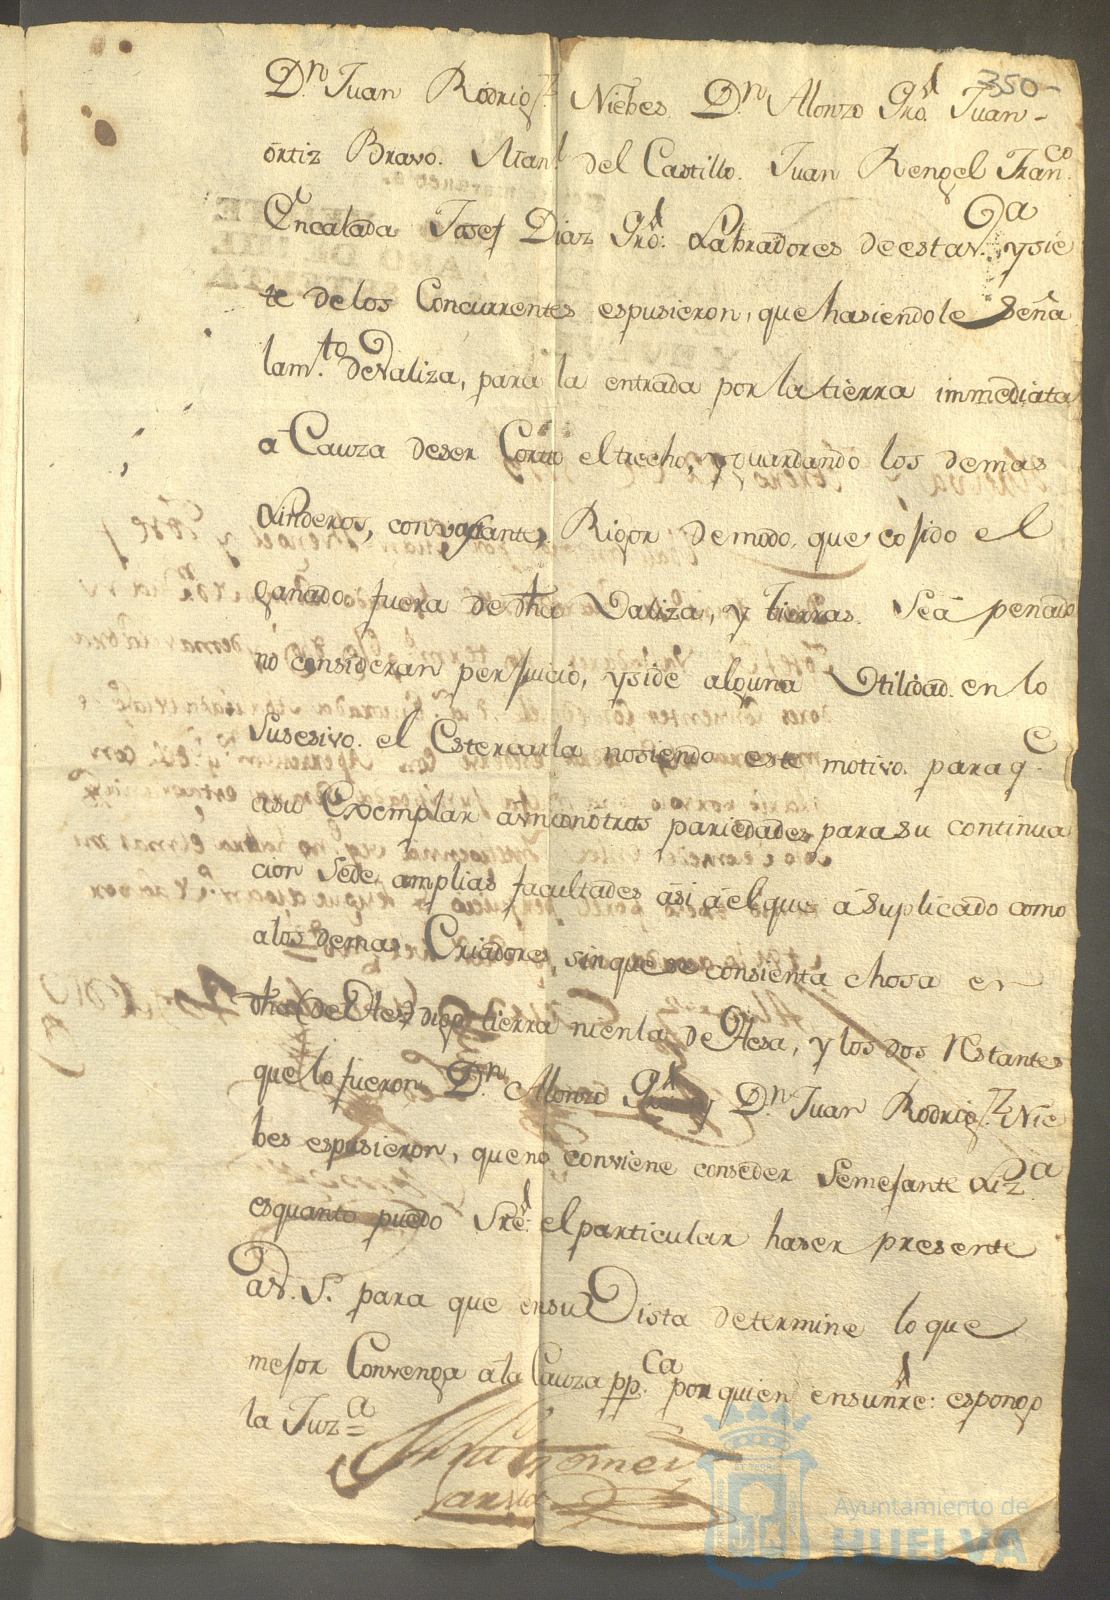 350
Dn. Juan Rodrigz. Niebes. Dn. Alonzo Gro. Juan
ortiz Bravo. Manl. del Castillo. Juan Rengel Franco.
Encalada Josef Diaz Gro: Labradores de esta Va. y sie
te de los Concurrentes espusieron, que hasiendole Seña
lamto. de Valiza, para la entrada por la tierra immediata
a Cauza de ser Corto el trecho, y guardando los demas
Linderos, con Rigor de modo, que cojido el
ganado fuera de dha Valiza, y tierras. Sea penado
no consideran perjuicio, y si de alguna Vtilidad. en lo
Susesivo. el Estercarla no siendo este motivo. para qe.
a su Exemplar pariedades para su continua
cion Se de amplias facultades asi á el que á Suplicado como
a los demas Criadores, sin que se consienta chosa en
dha digo tierra ni en la deHesa, y los dos Restantes
que lo fueron Dn. Alonzo Gro. y Dn. Juan Rodrigz. Nie
bes espusieron, que no conviene conseder Semejante Liza.
es quanto puedo Sre. el particular haser presente
a V. S. para que en su Vista determine lo que
mejor Convenga a la Cauza ppca. por quien en su nre: espongo
la Juza.
Ayuntamiento de
HUELVA